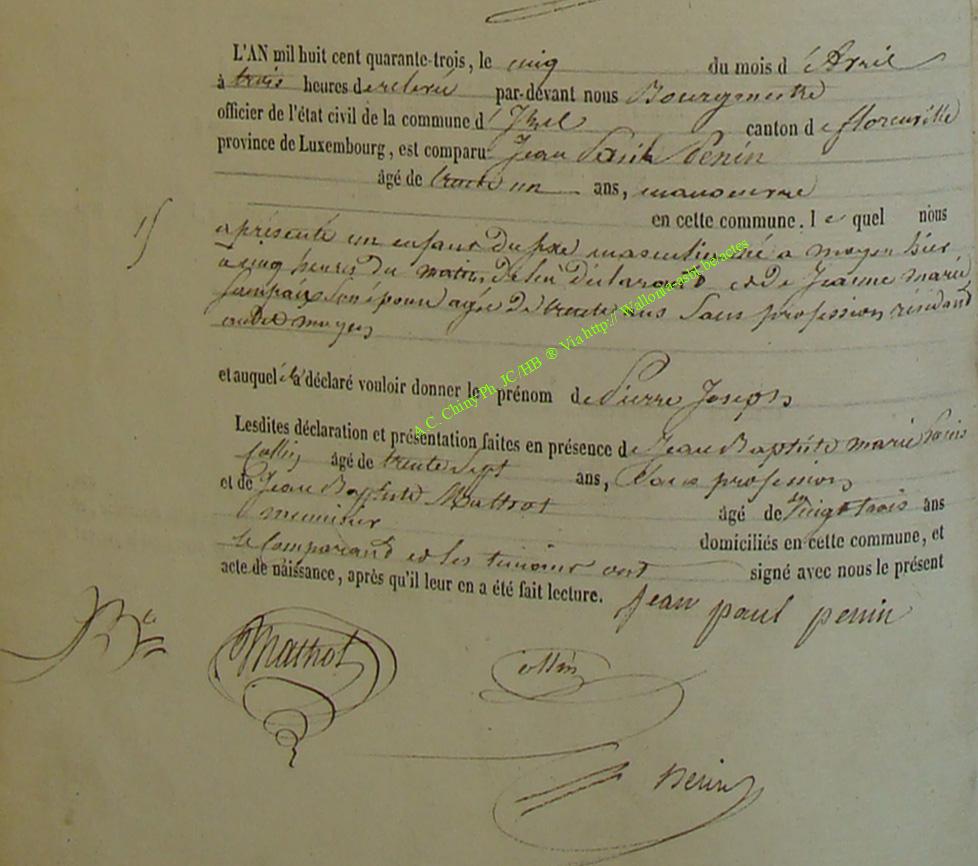 L'AN mil huit cent quarante-trois, le cinq du mois d'Avril
à trois heures de relevé par-devant nous Bourgmestre
officier de l'état civil de la commune d'Izel canton de florenville
province de Luxembourg, est comparu Jean Paul Penin
âgé de trente un ans, manoeuvre
en cette commune. le quel nous
1/
a présenté un enfant du sexe masculin né a moyen hier
a cinq heures du matin, de lui déclarant et de Jeanne marie
son épouse agée de trente ans Sans profession résidant
moyen
et auquel il a déclaré vouloir donner le prénom de Pierre Joseph
Lesdites déclaration et présentation faites en présence de Jean Baptiste marie Louis
Collin âgé de trente sept ans, Sans profession
et de Jean Baptiste Mathot âgé de vingt trois ans
meunier domiciliés en cette commune, et
le Comparant et les témoins ont signé avec nous le présent
acte de naissance, après qu'il leur en a été fait lecture.
jean paul penin
Mathot collin
A.C. Chiny Ph. JC/HB ® Via http://Wallonia-asbl.be.actes